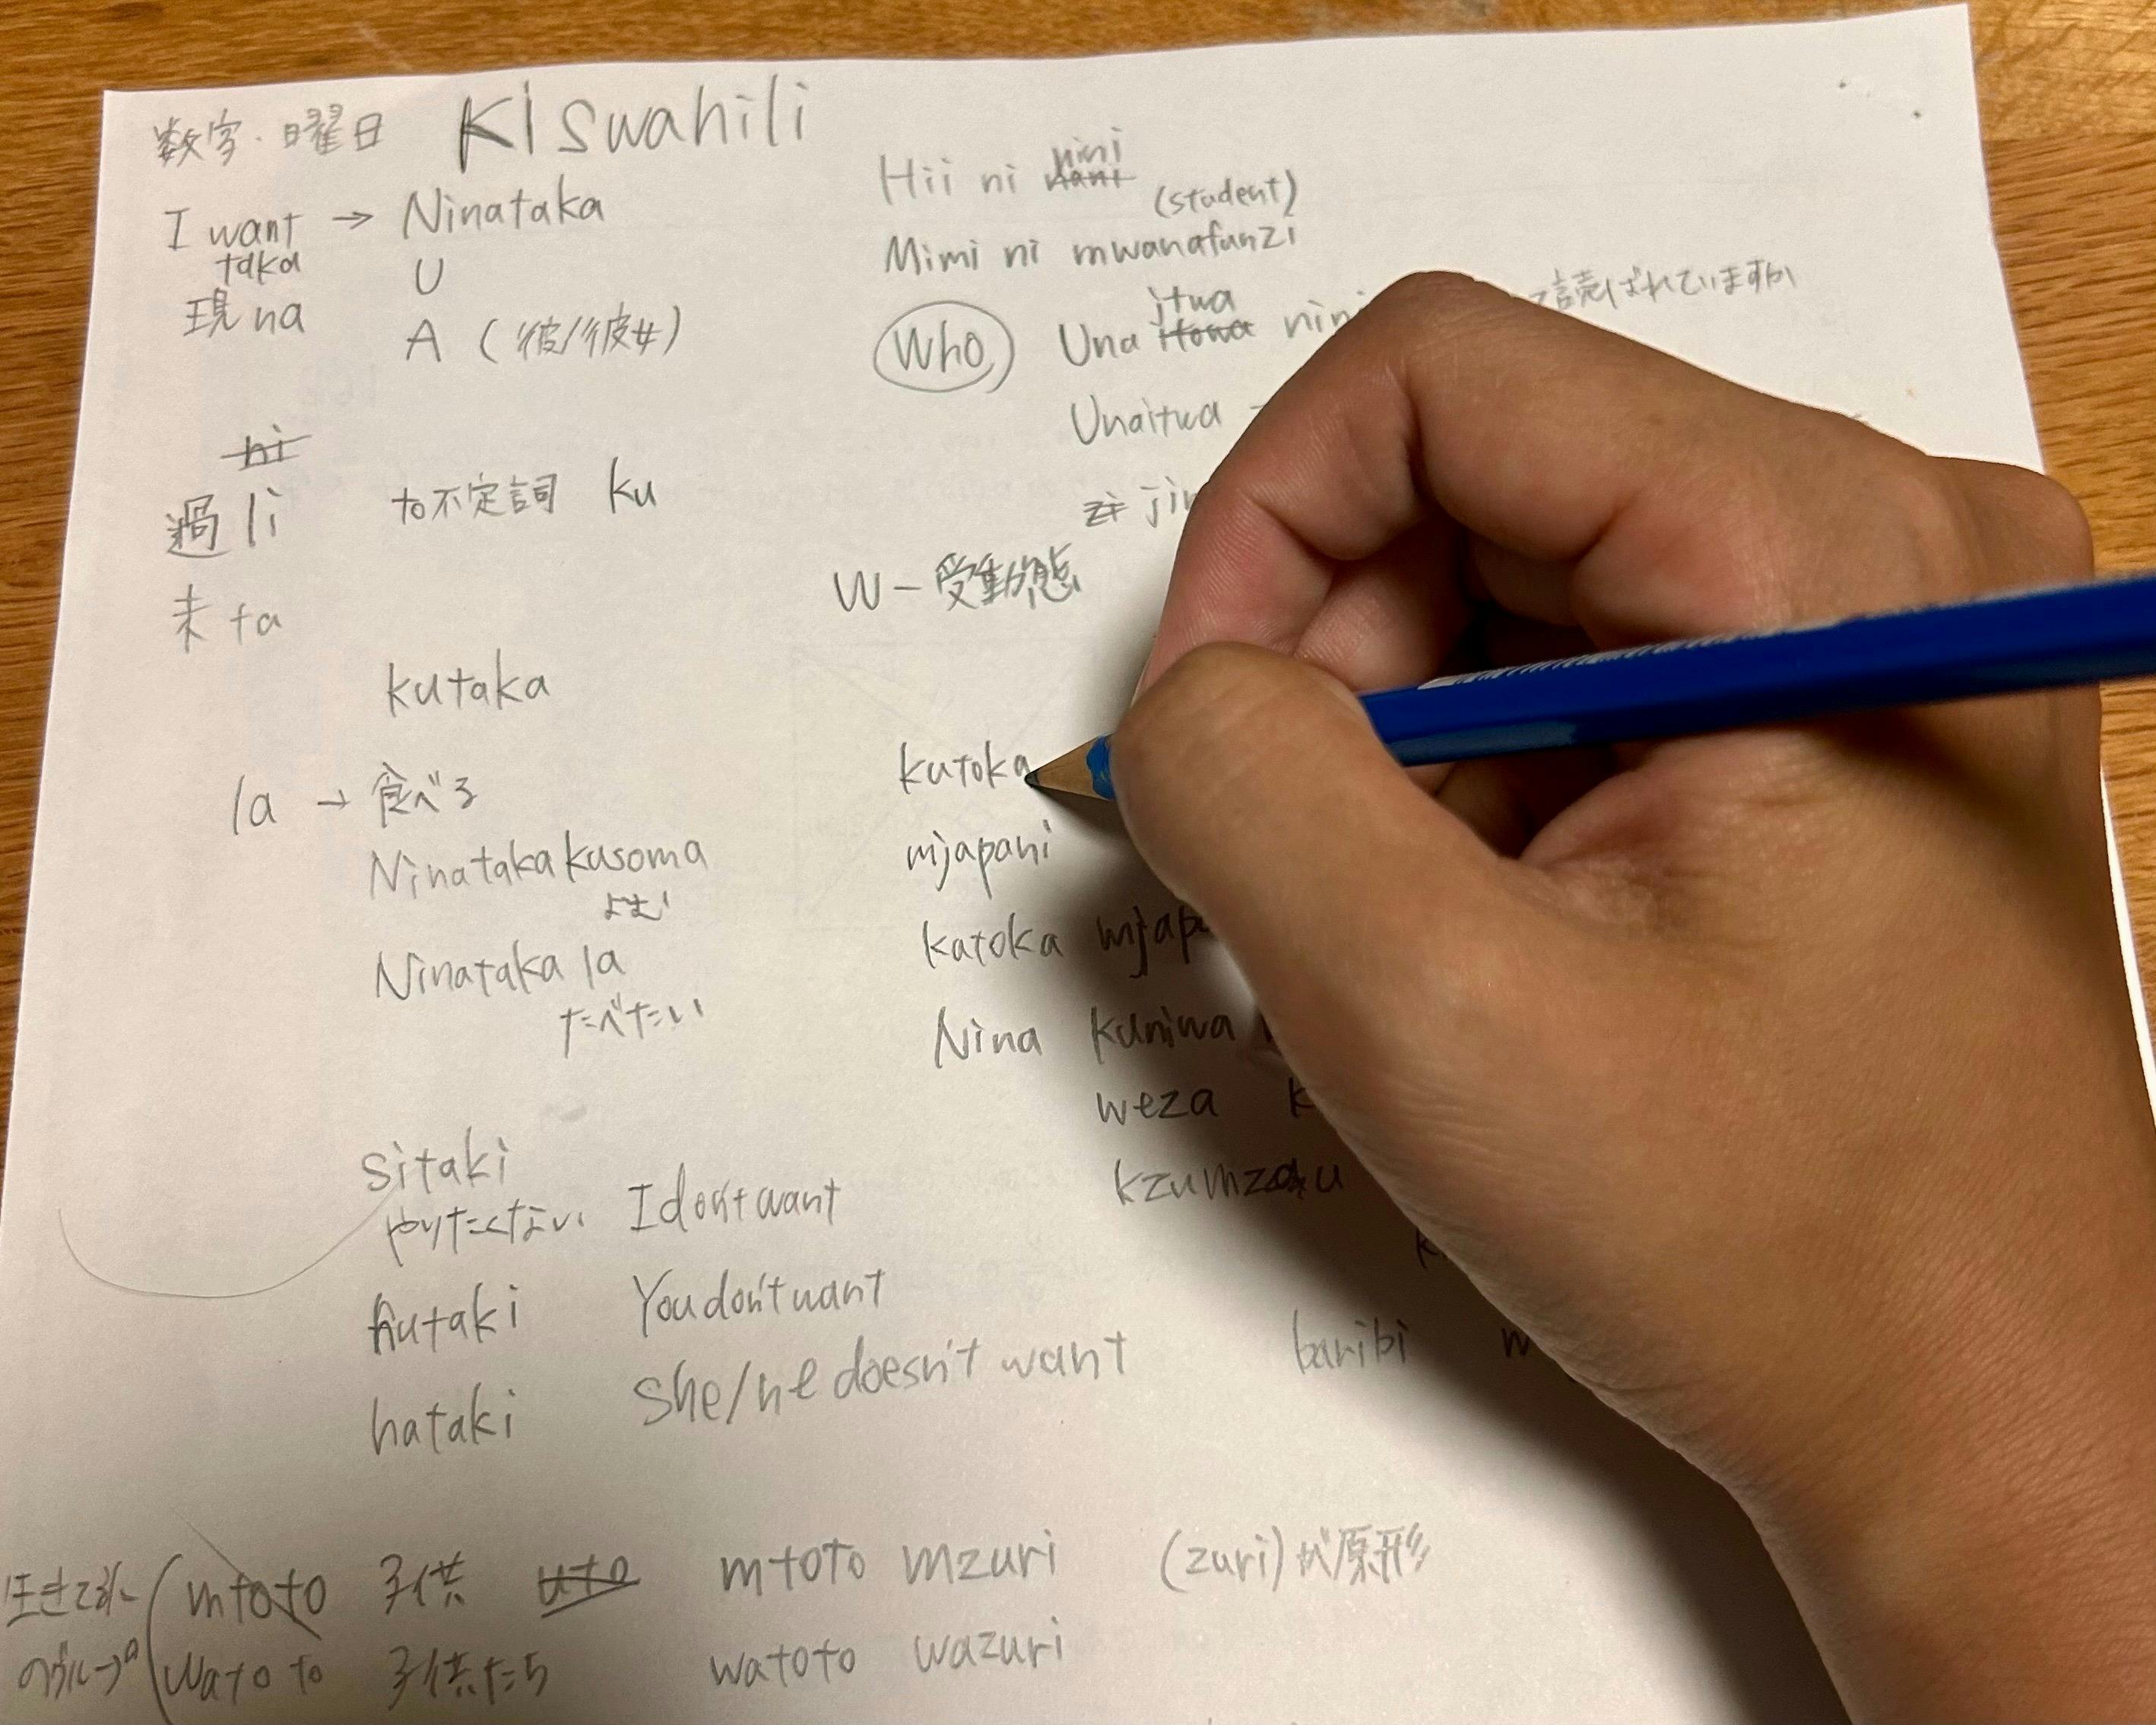 数字・曜日 KIswahili
I want → Ninataka
taka
U
現 na
A (彼/彼女)
ni
過 li
to不定詞 ku
未 ta
kutaka
la → 食べる
Ninataka kusoma
よむ
Ninataka la
たべたい
sitaki
やりたくない I don't want
hutaki You don't want
hataki She/he doesn't want
Hii ni nini
nani
(student)
Mimi ni mwanafunzi
Who Una itwa nini
読ばれていますか
Unaitwa
jin
W - 受動態
kutoka
mjapani
katoka mjap
Nina kuniwa
weza k
baribi
生きてる
のグループ
mtoto 子供 uto mtoto mzuri (zuri)が原形
watoto 子供たち watoto wazuri